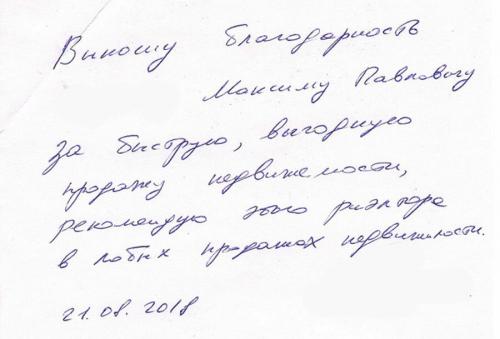 Выношу благодарность
Максиму Павловичу
За быструю, выгодную
продажу недвижемости,
рекомендую этого риэлтора
в любых продажах недвижимости.
21.08.2018